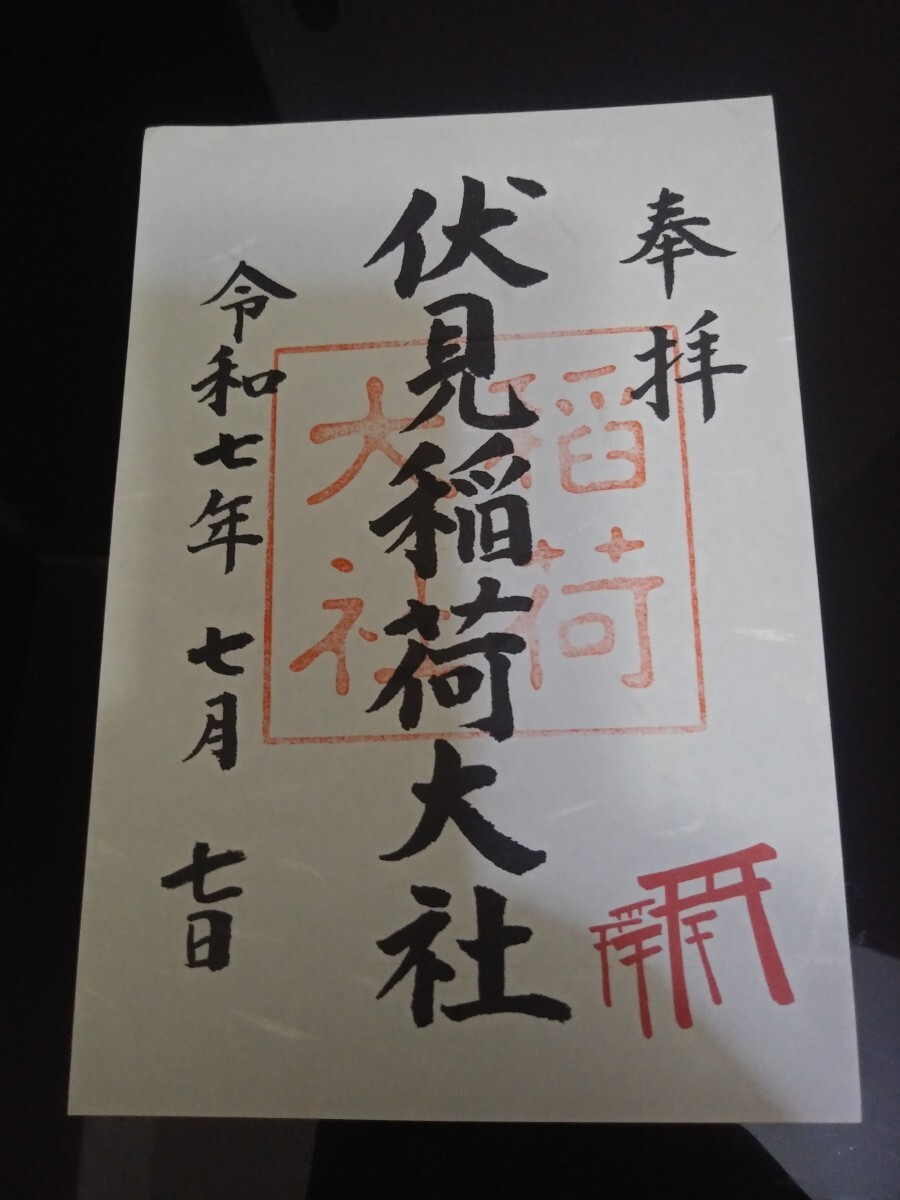 奉拝
伏見稲荷大社
稲荷
大社
令和七年 七月 七日